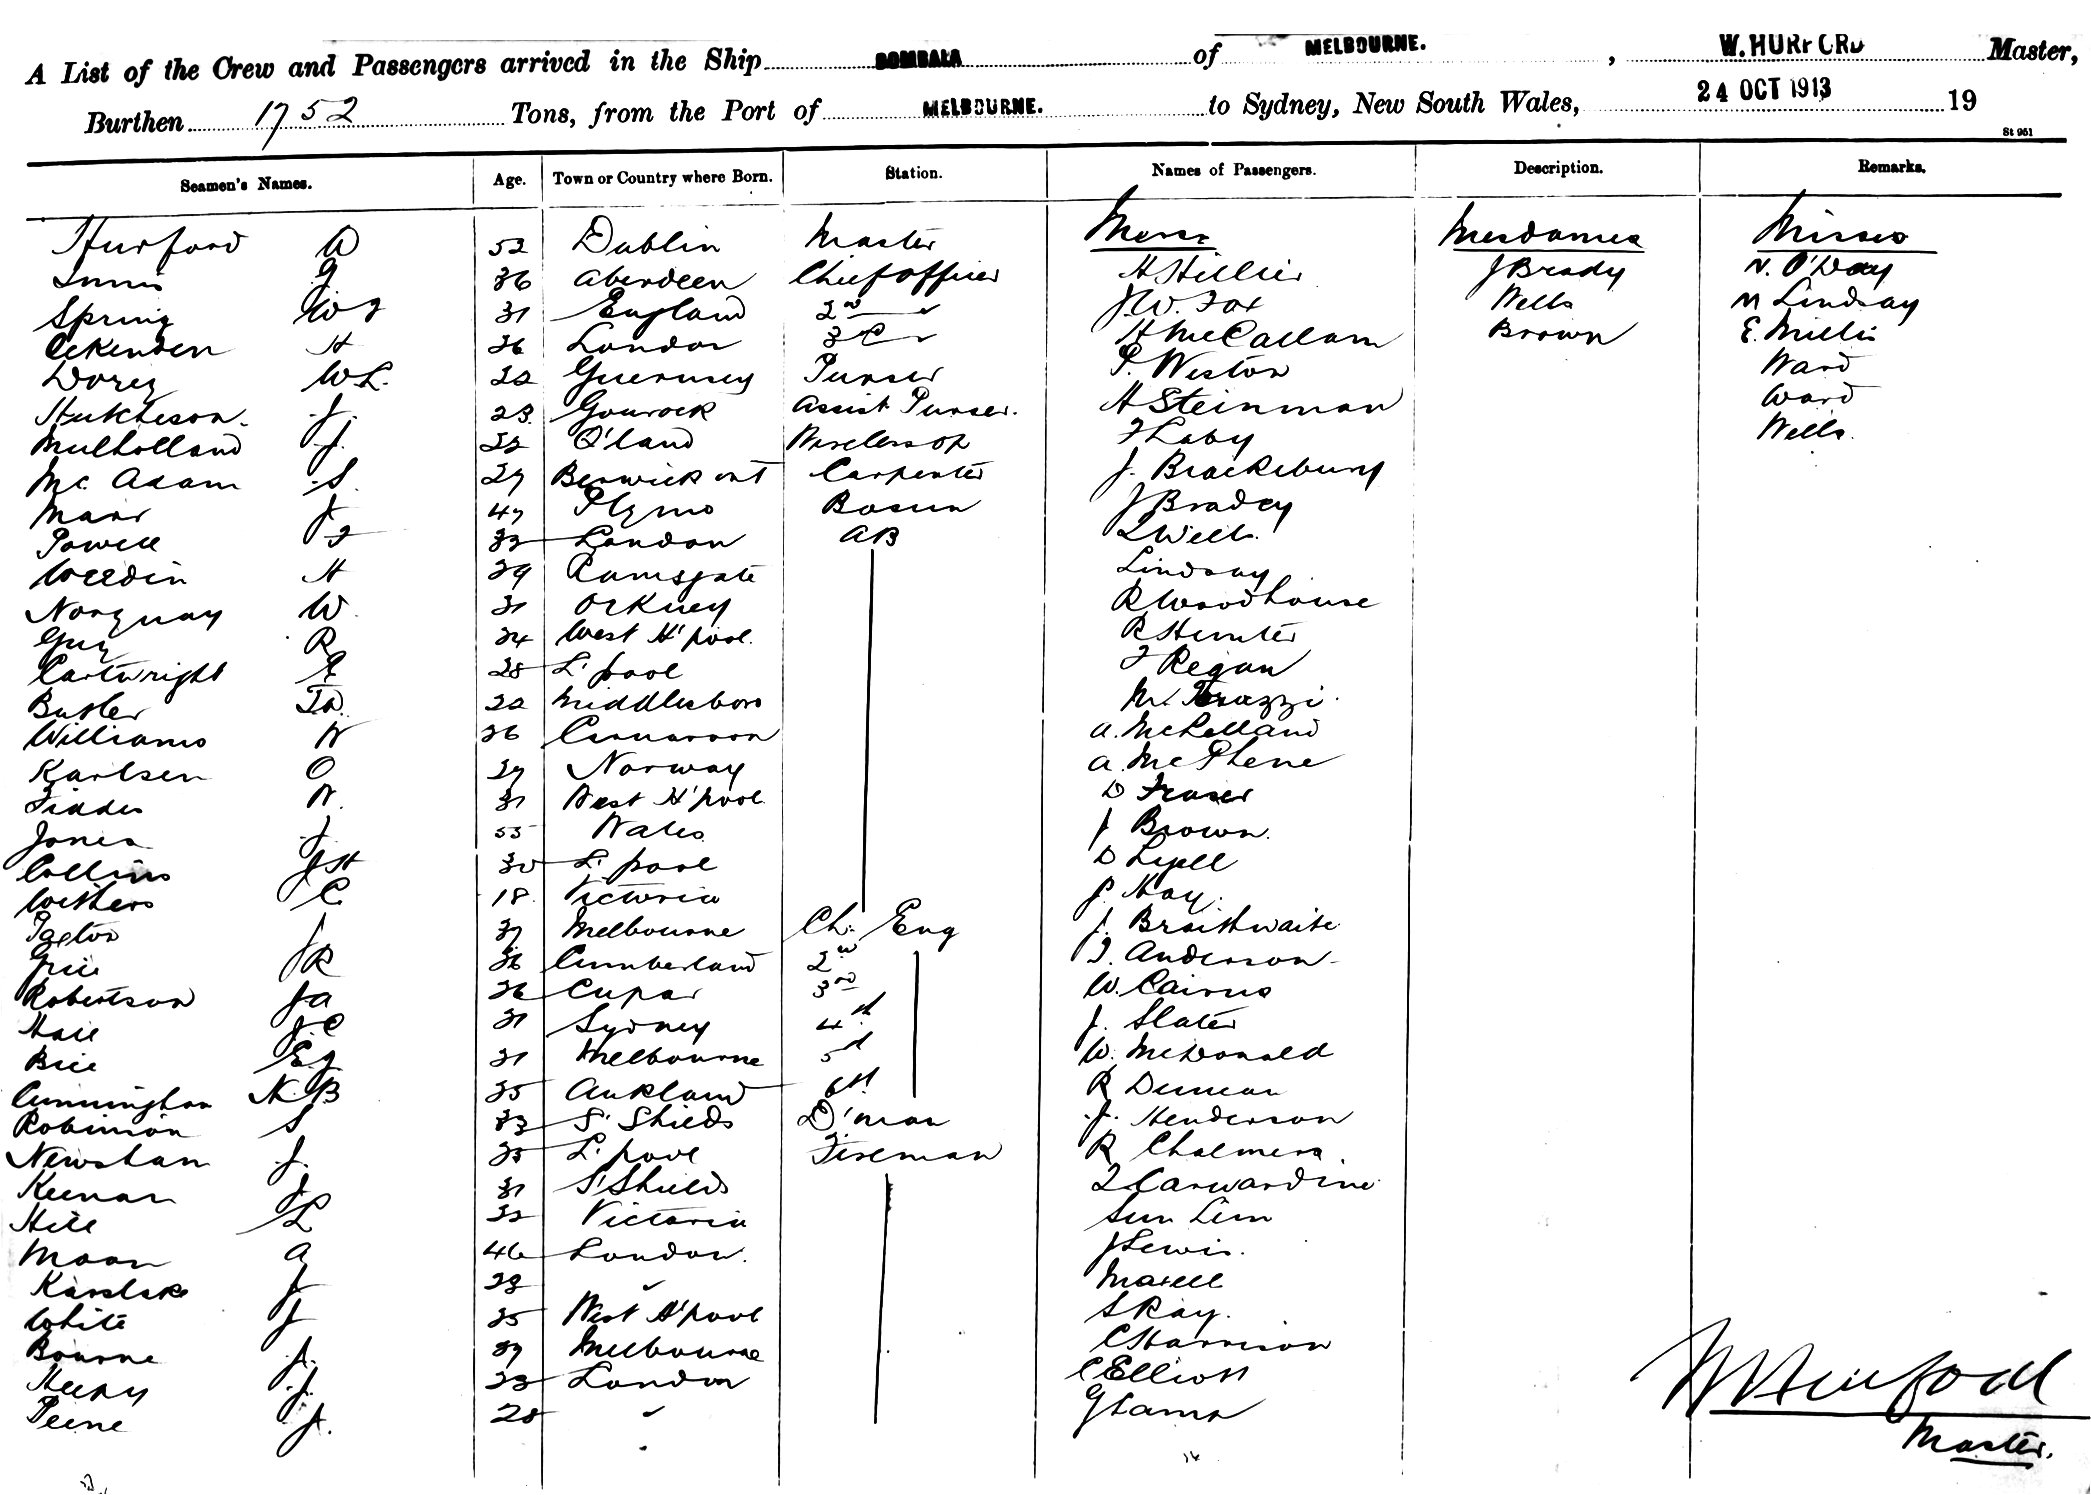 A List of the Crew and Passengers arrived in the Ship BOMBALA of MELBOURNE. , W. HURFORD Master,
Burthen 1752 Tons, from the Port of MELBOURNE. to Sydney, New South Wales, 24 OCT 1913 19
St 961
Seamen's Names. Age. Town or Country where Born. Station. Names of Passengers. Description. Remarks.
Hurford W 52 Dublin Master Messrs Mesdames Misses
Innis G 36 Aberdeen Chief Officer H Hillier J Brady N. O'Day
Spring W J 31 England 2nd " J.W. Fox Wells M Lindsay
Ockenden H 26 London 3rd " H McCallam Brown E. Millis
Dorey W L. 22 Guernsey Purser P. Weston Ward
Hutcheson. J. 23 Gourock Assist Purser. H Steinman Ward
Mulholland J. 22 Q'land Wireless Op F Laby Wells.
Mc. Adam S. 29 Berwick Carpenter J. Brackebury
Marr J. 47 Plymo Bosun J Bradey
Powell F 33 London AB L Wells.
Weedin H 29 Ramsgate Lindsay
Norquay W. 31 Orkney R Woodhouse
Guy R 24 West H'pool. R Hunter
Cartwright E 28 L'pool F Regan
Butler 22 Middlesboro M.
Williams W 26 Carnarvon A. McLelland
Karlsen O 29 Norway A. McPhene
Fiddes W. 31 West H'pool D Fraser
Jones J. 55 Wales J Brown.
Collins J H 30 L'pool D Lyell
Withers C 18. Victoria J. Hay.
Paxton J 37 Melbourne Ch. Eng J. Braithwaite
Grice J R 36 Cumberland 2nd J. Anderson
Robertson J A 26 Cupar 3rd W. Cairns
Hall J. C 31 Sydney 4th J. Slater
Bice E G 31 Melbourne 5th W. McDonald
Cunningham N. B 25 Aukland 6th R Duncan
Robinson S 33 S' Shields D'man J. Henderson
Newshan J. 35 L'pool Fireman R Chalmers.
Keenan J 31 S'Shields L Carwardine
Hill L 32 Victoria Sun Lim
Moon A 46 London. J Lewis.
Karslake J 23 " Maxell
White J 25 West H'pool S Ray.
Bourne J. 39 Melbourne C Harrison
Heepy J. 23 London C Elliott
Peene J. 28 " G Lamb
W Hurford
Master.